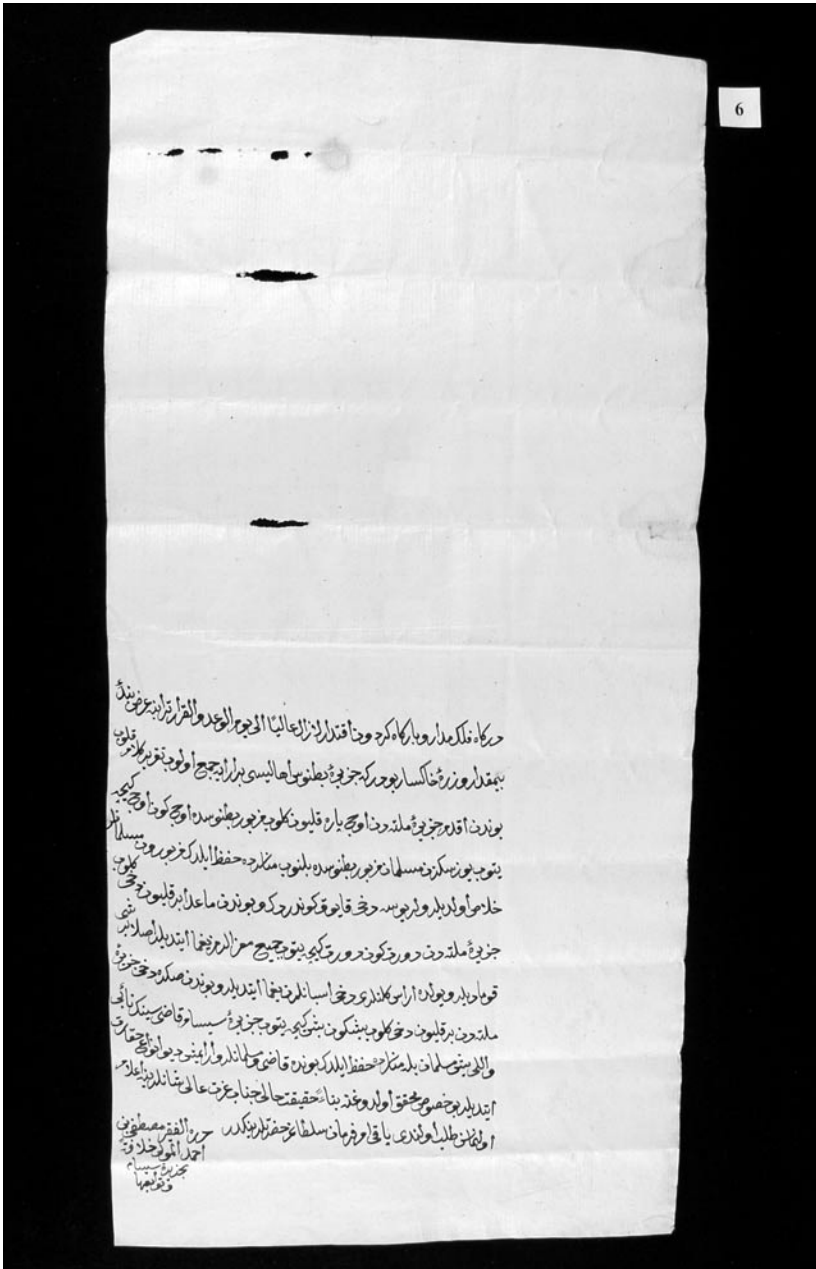 6
دركاه فلك مدار و بارگاه كردون اقتدار لازال عاليا الى يوم الوعد والقرار ترابنه عرض بندۀ
بيمقدار و ذرۀ خاكسار بودركه جزيرۀ بطنوس اهاليسى برار ايه جمع اولوب تقرير كلام قلوب
بوندن اقدم جزيرۀ ملته دن اوج پاره قليون كلوب مزبور بطنوسده اوج كون اوج كيجه
يتوب يوز سكزن مسلمان مزبور بطنوسده بلنوب مناستردە حفظ ايلدك مزبورون مسلمانلر
خلاص اولديلر ولريوسه دخى قايوق كوندردك و بوندن ماعدا بر قليون دخى كلوب
جزيرۀ ملته دن دورت كون دورت كيجه يتوب جميع معزالرمز يغما ايتديلر اصلا بر شى
قومايلر و يولده اراس كلنلرى دخى اسبابلرن يغما ايتديلر و بوندن صكره دخى جزيرۀ
ملته دن بر قليون دخى كلوب بش كون بش كيجه يتوب جزيرۀ سيسام قاضيسينك نائبى
و اللى بش مسلمان بله مناستردە حفظ ايلدك بونده قاضى و مسلمانلر وار ايمش ديو انواع حقارت
ايتديلر بو خصوص محقق اولدوغنه بناء حقيقت حالى جناب عزت عالى شانلرينه اعلام
اولنمانى طلب اولندى باقى امر و فرمان سلطانم حضرتلرينكدر
حرره الفقير مصطفى بن
احمد المولى خلافة
بجزيرۀ سيسام
و توابعها